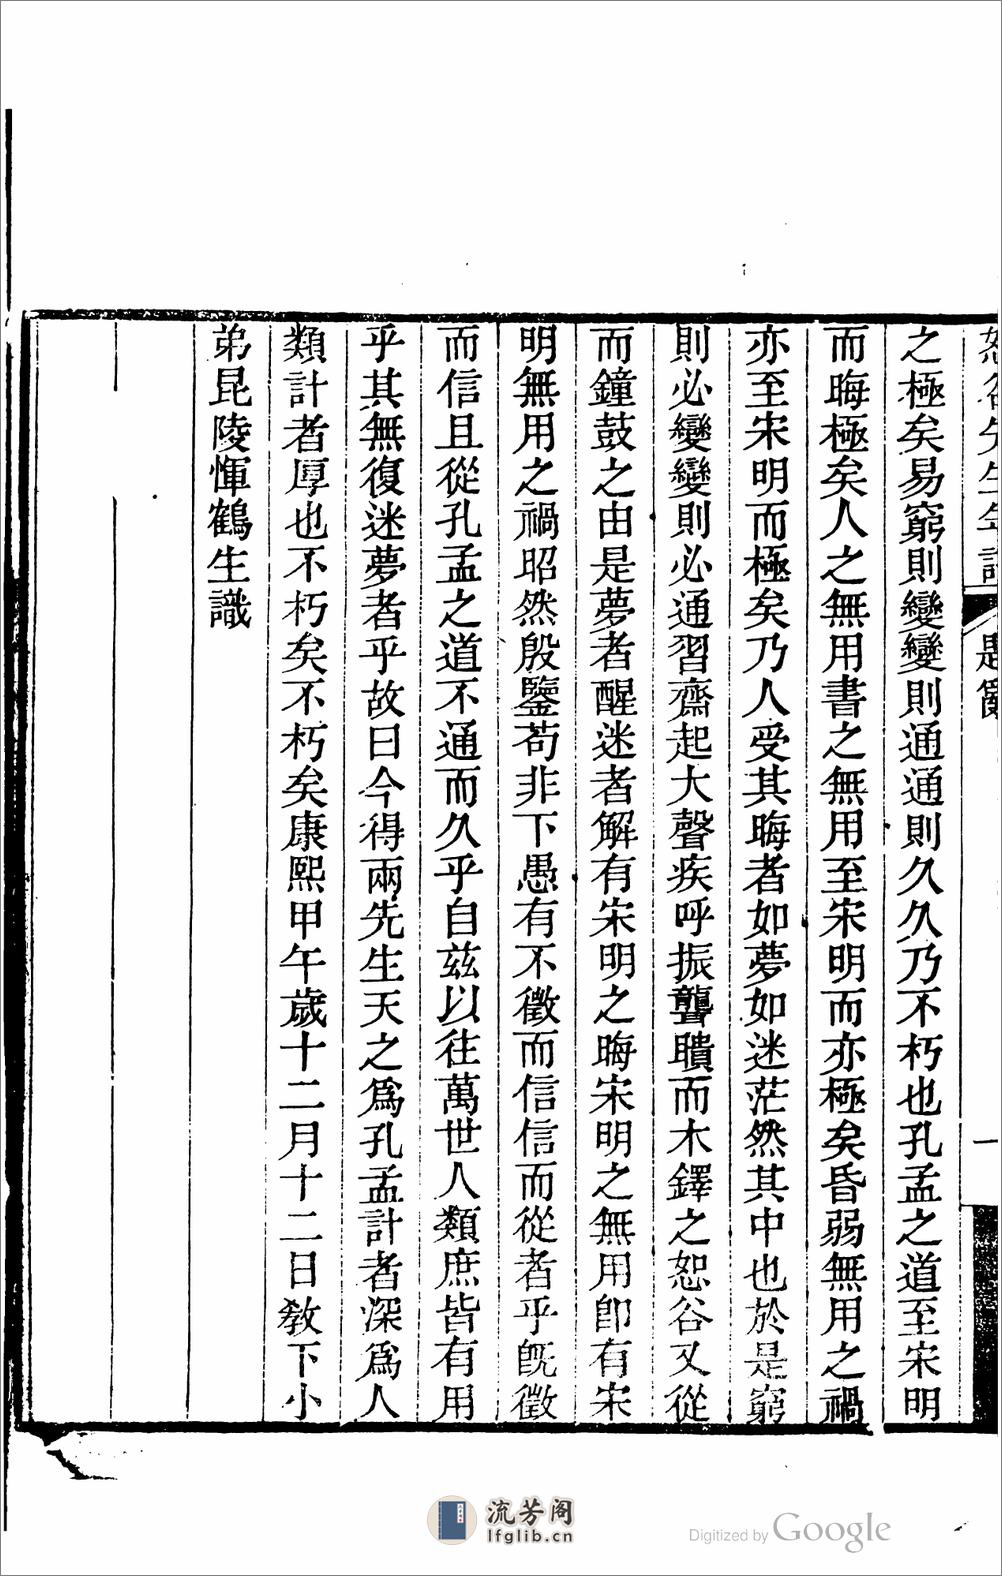 恕谷先生年譜 題詞 一
之極矣易窮則變變則通通則久久乃不朽也孔孟之道至宋明
而晦極矣人之無用書之無用至宋明而亦極矣昏弱無用之禍
亦至宋明而極矣乃人受其晦者如夢如迷茫然其中也於是窮
則必變變則必通習齋起大聲疾呼振聾聵而木鐸之恕谷又從
而鐘鼓之由是夢者醒迷者解有宋明之晦宋明之無用卽有宋
明無用之禍昭然殷鑒苟非下愚有不徵而信信而從者乎旣徵
而信且從孔孟之道不通而久乎自茲以往萬世人類庶皆有用
乎其無復迷夢者乎故曰今得兩先生天之爲孔孟計者深爲人
類計者厚也不朽矣不朽矣康熙甲午歲十二月十二日敎下小
弟昆陵惲鶴生識
流芳阁
lfglib.cn
Digitized by Google